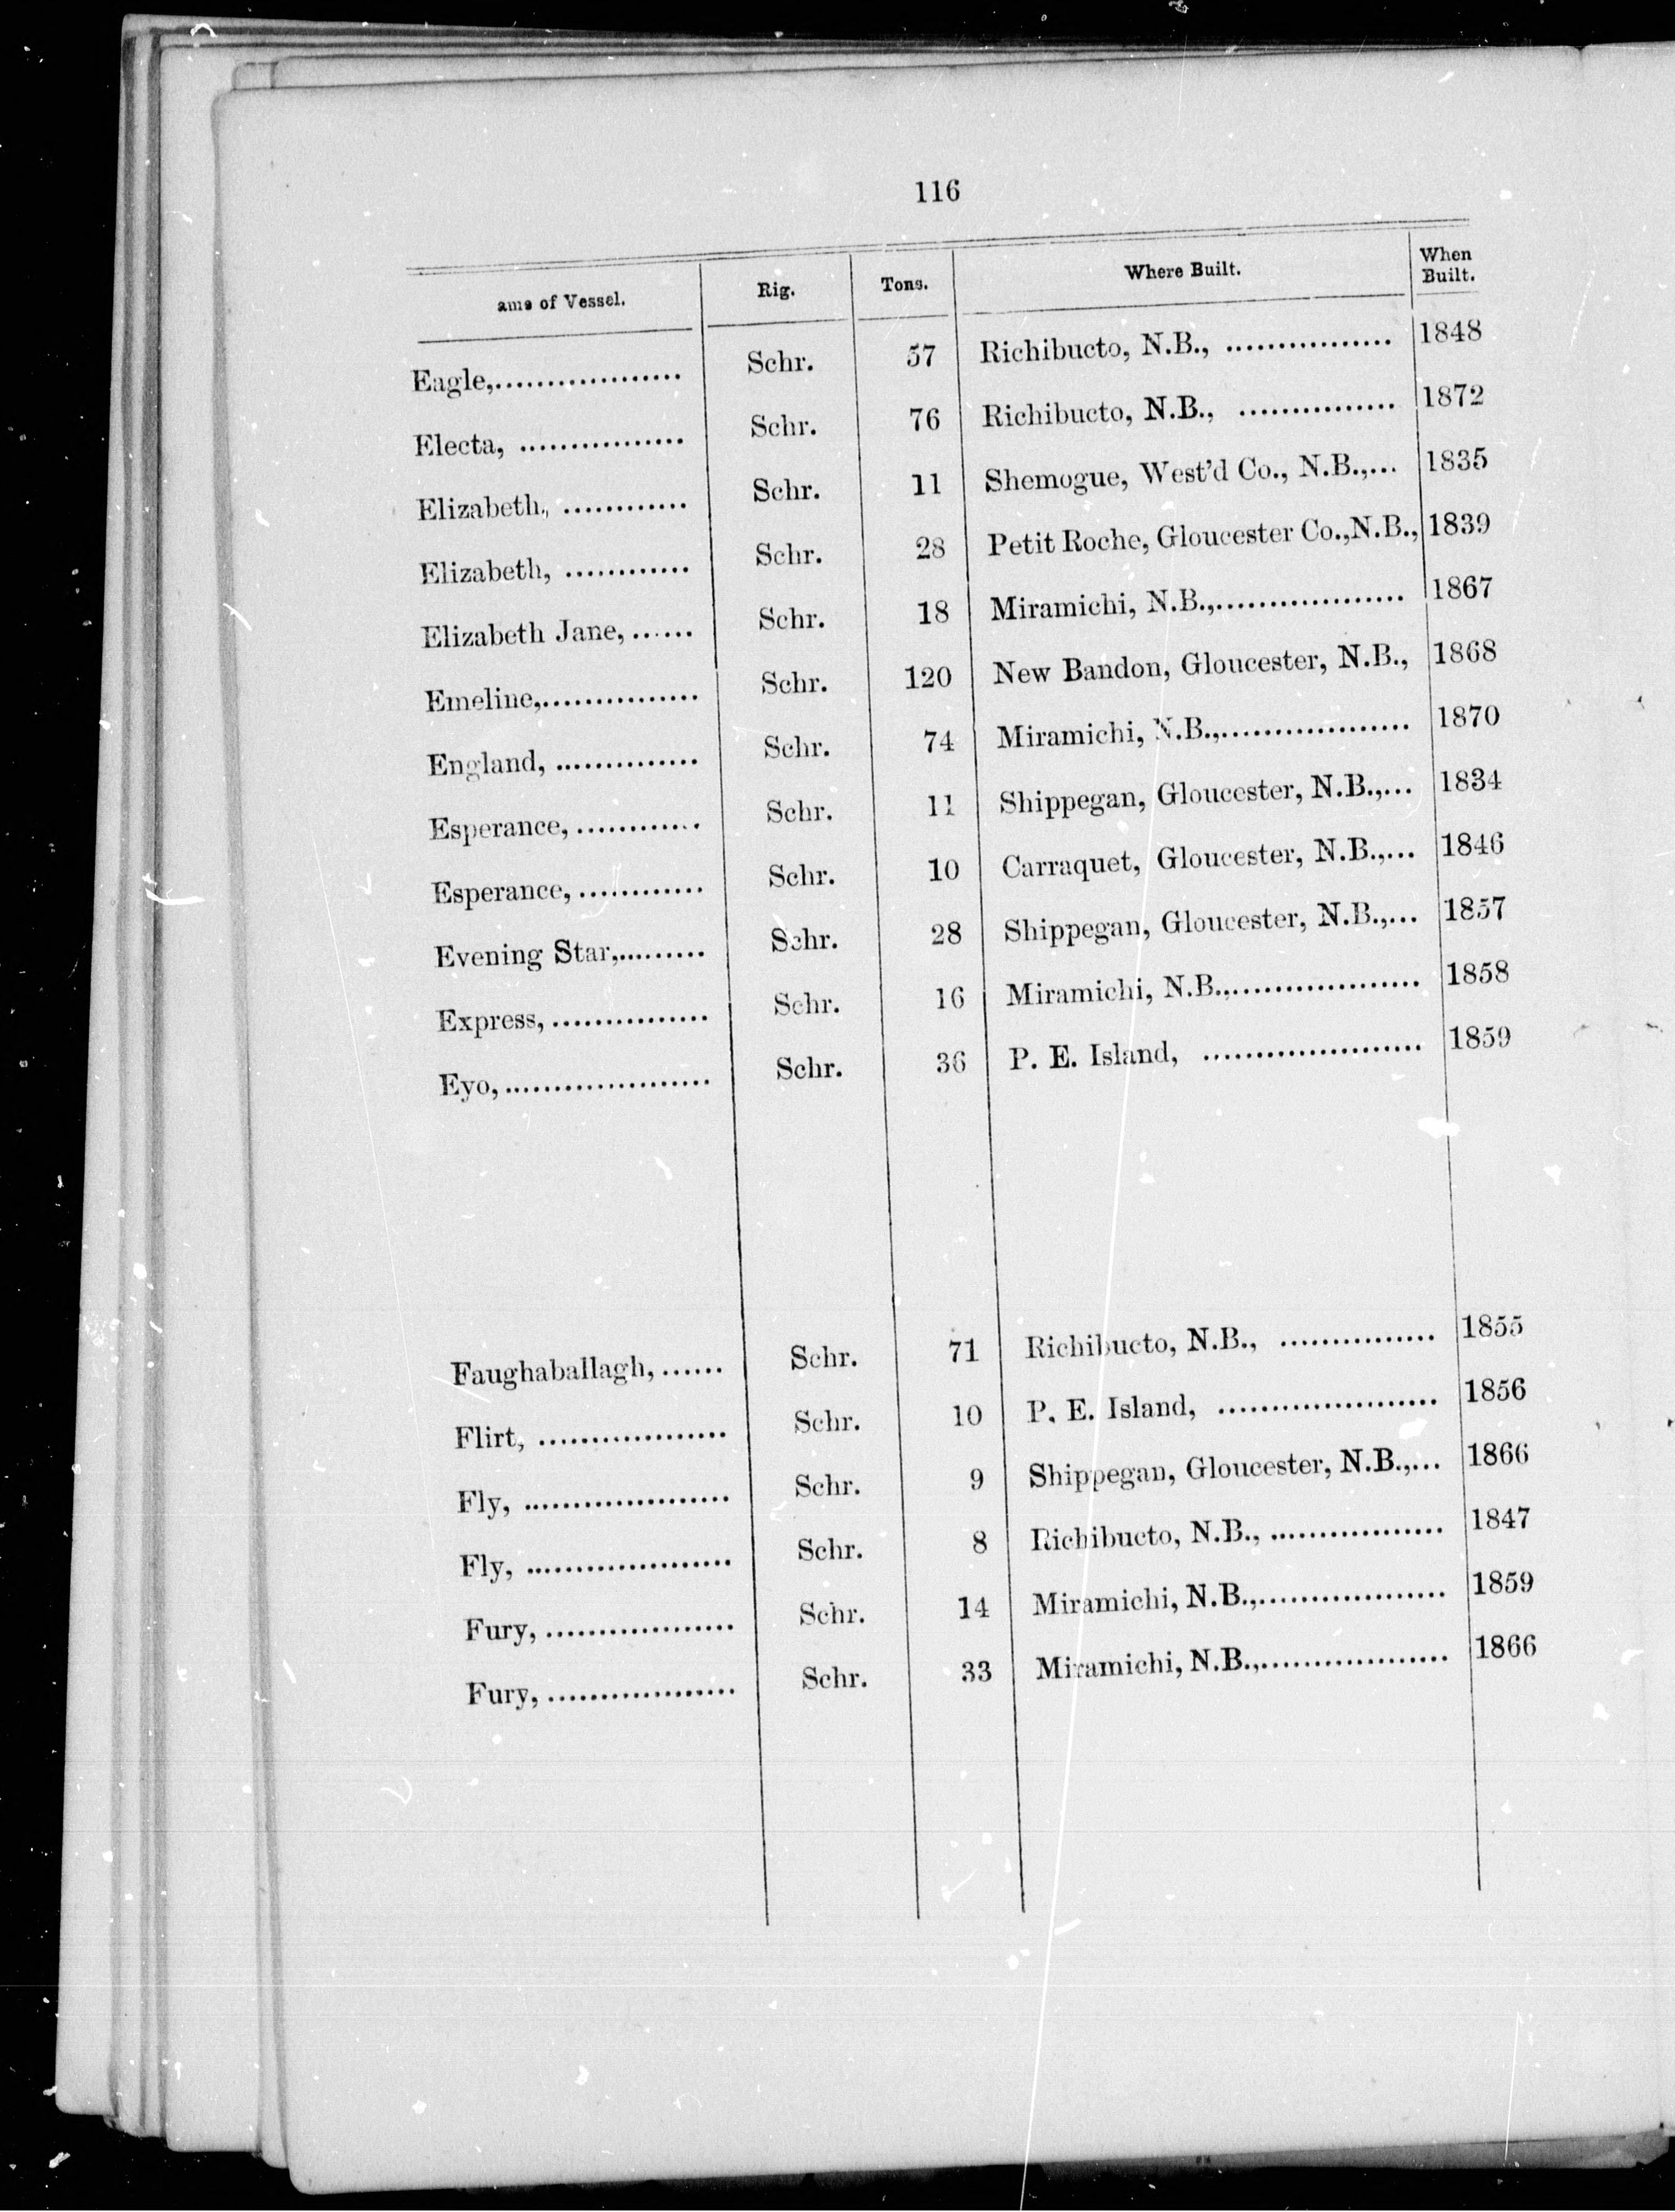 116
ame of Vessel. Rig. Tons. Where Built. When Built.
Eagle,.................. Schr. 57 Richibucto, N.B., ................ 1848
Electa, ................ Schr. 76 Richibucto, N.B., ............... 1872
Elizabeth, ............ Schr. 11 Shemogue, West'd Co., N.B.,... 1835
Elizabeth, ............ Schr. 28 Petit Roche, Gloucester Co.,N.B., 1839
Elizabeth Jane, ...... Schr. 18 Miramichi, N.B.,.................. 1867
Emeline,............... Schr. 120 New Bandon, Gloucester, N.B., 1868
England, .............. Schr. 74 Miramichi, N.B.,.................. 1870
Esperance, ............ Schr. 11 Shippegan, Gloucester, N.B.,... 1834
Esperance, ............ Schr. 10 Carraquet, Gloucester, N.B.,... 1846
Evening Star,......... Schr. 28 Shippegan, Gloucester, N.B.,... 1857
Express, ............... Schr. 16 Miramichi, N.B.,.................. 1858
Eyo, .................... Schr. 36 P. E. Island, ..................... 1859
Faughaballagh, ...... Schr. 71 Richibucto, N.B., ............... 1855
Flirt, .................. Schr. 10 P. E. Island, ..................... 1856
Fly, .................... Schr. 9 Shippegan, Gloucester, N.B.,... 1866
Fly, .................... Schr. 8 Richibucto, N.B., ................. 1847
Fury, .................. Schr. 14 Miramichi, N.B.,.................. 1859
Fury, .................. Schr. 33 Miramichi, N.B.,.................. 1866